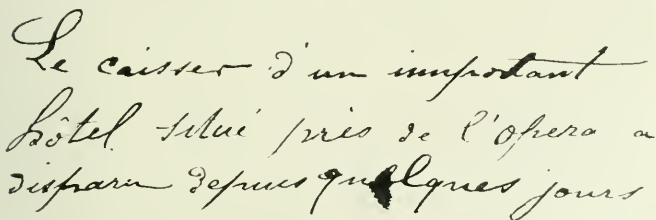 Le caisser d'un important
hôtel situé près de l'Opera a
disparu depuis quelques jours